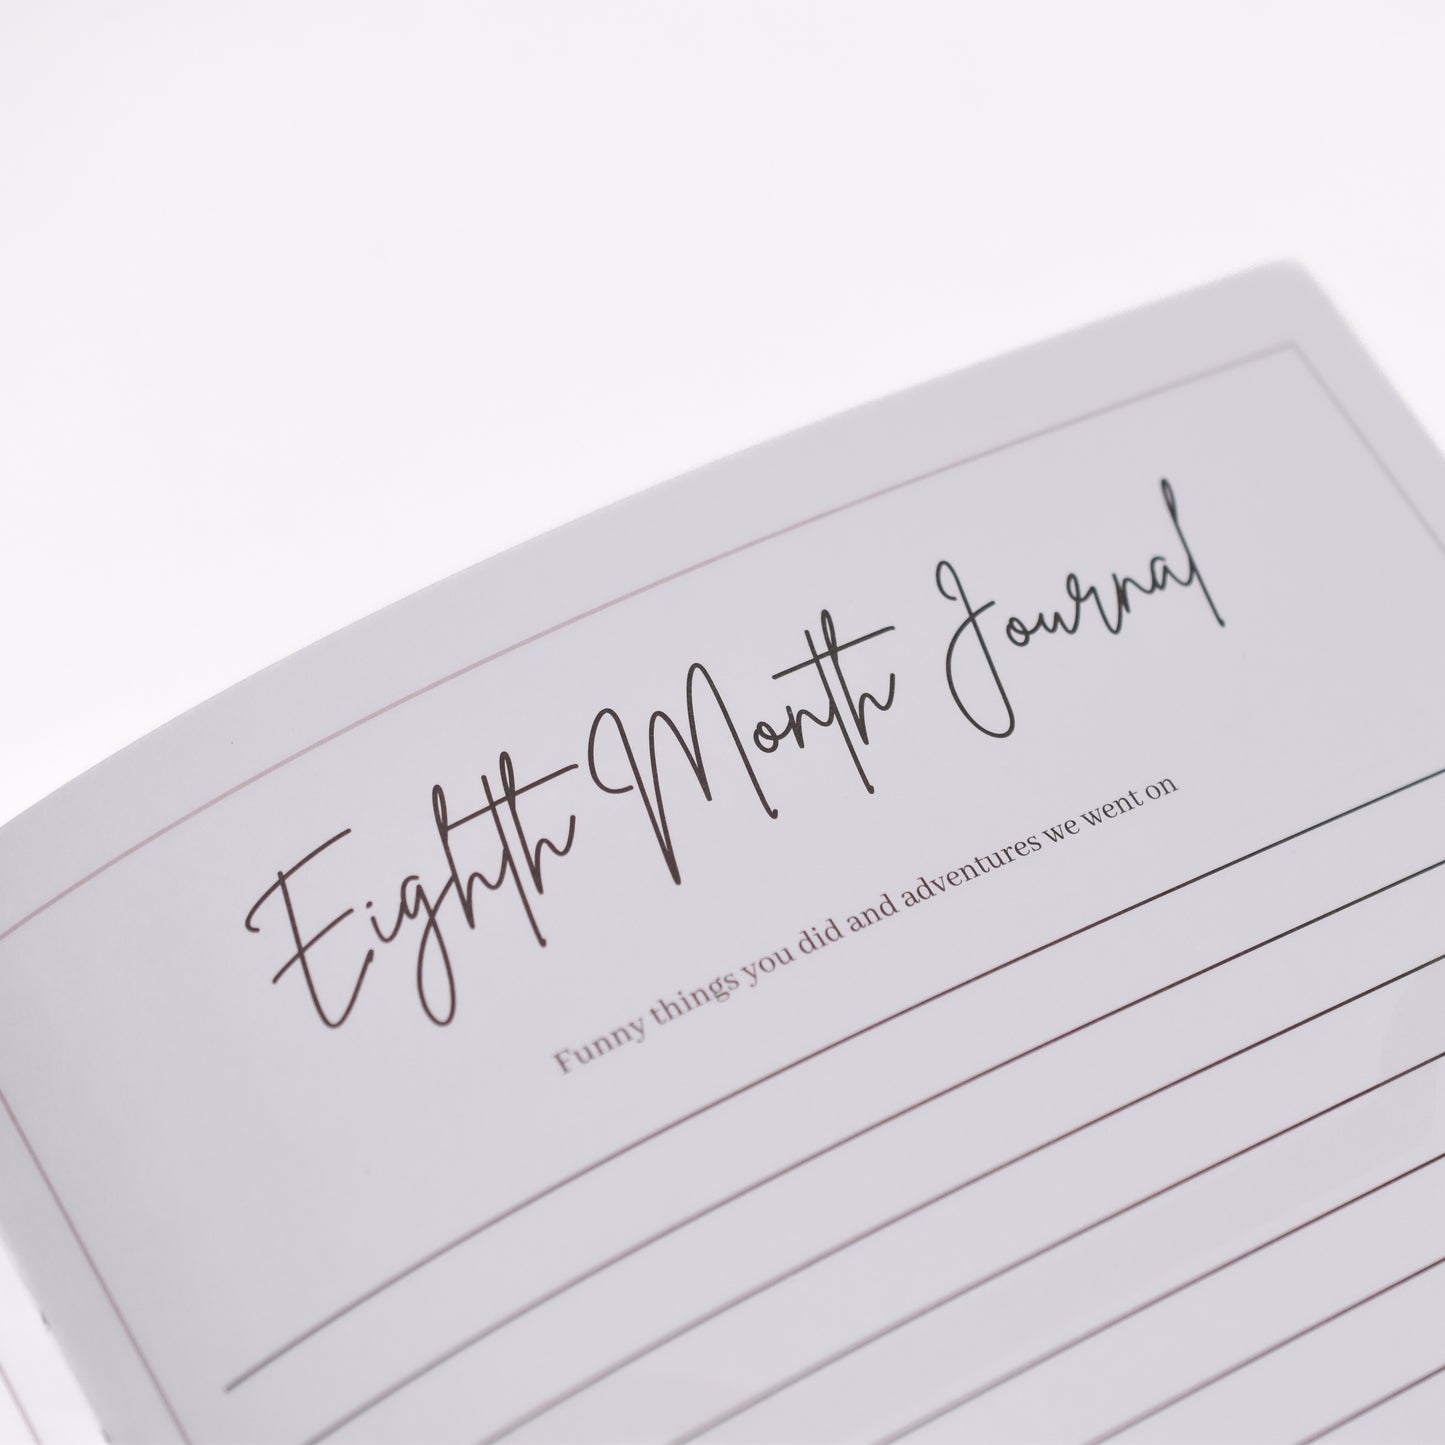 Eighth Month Journal
Funny things you did and adventures we went on